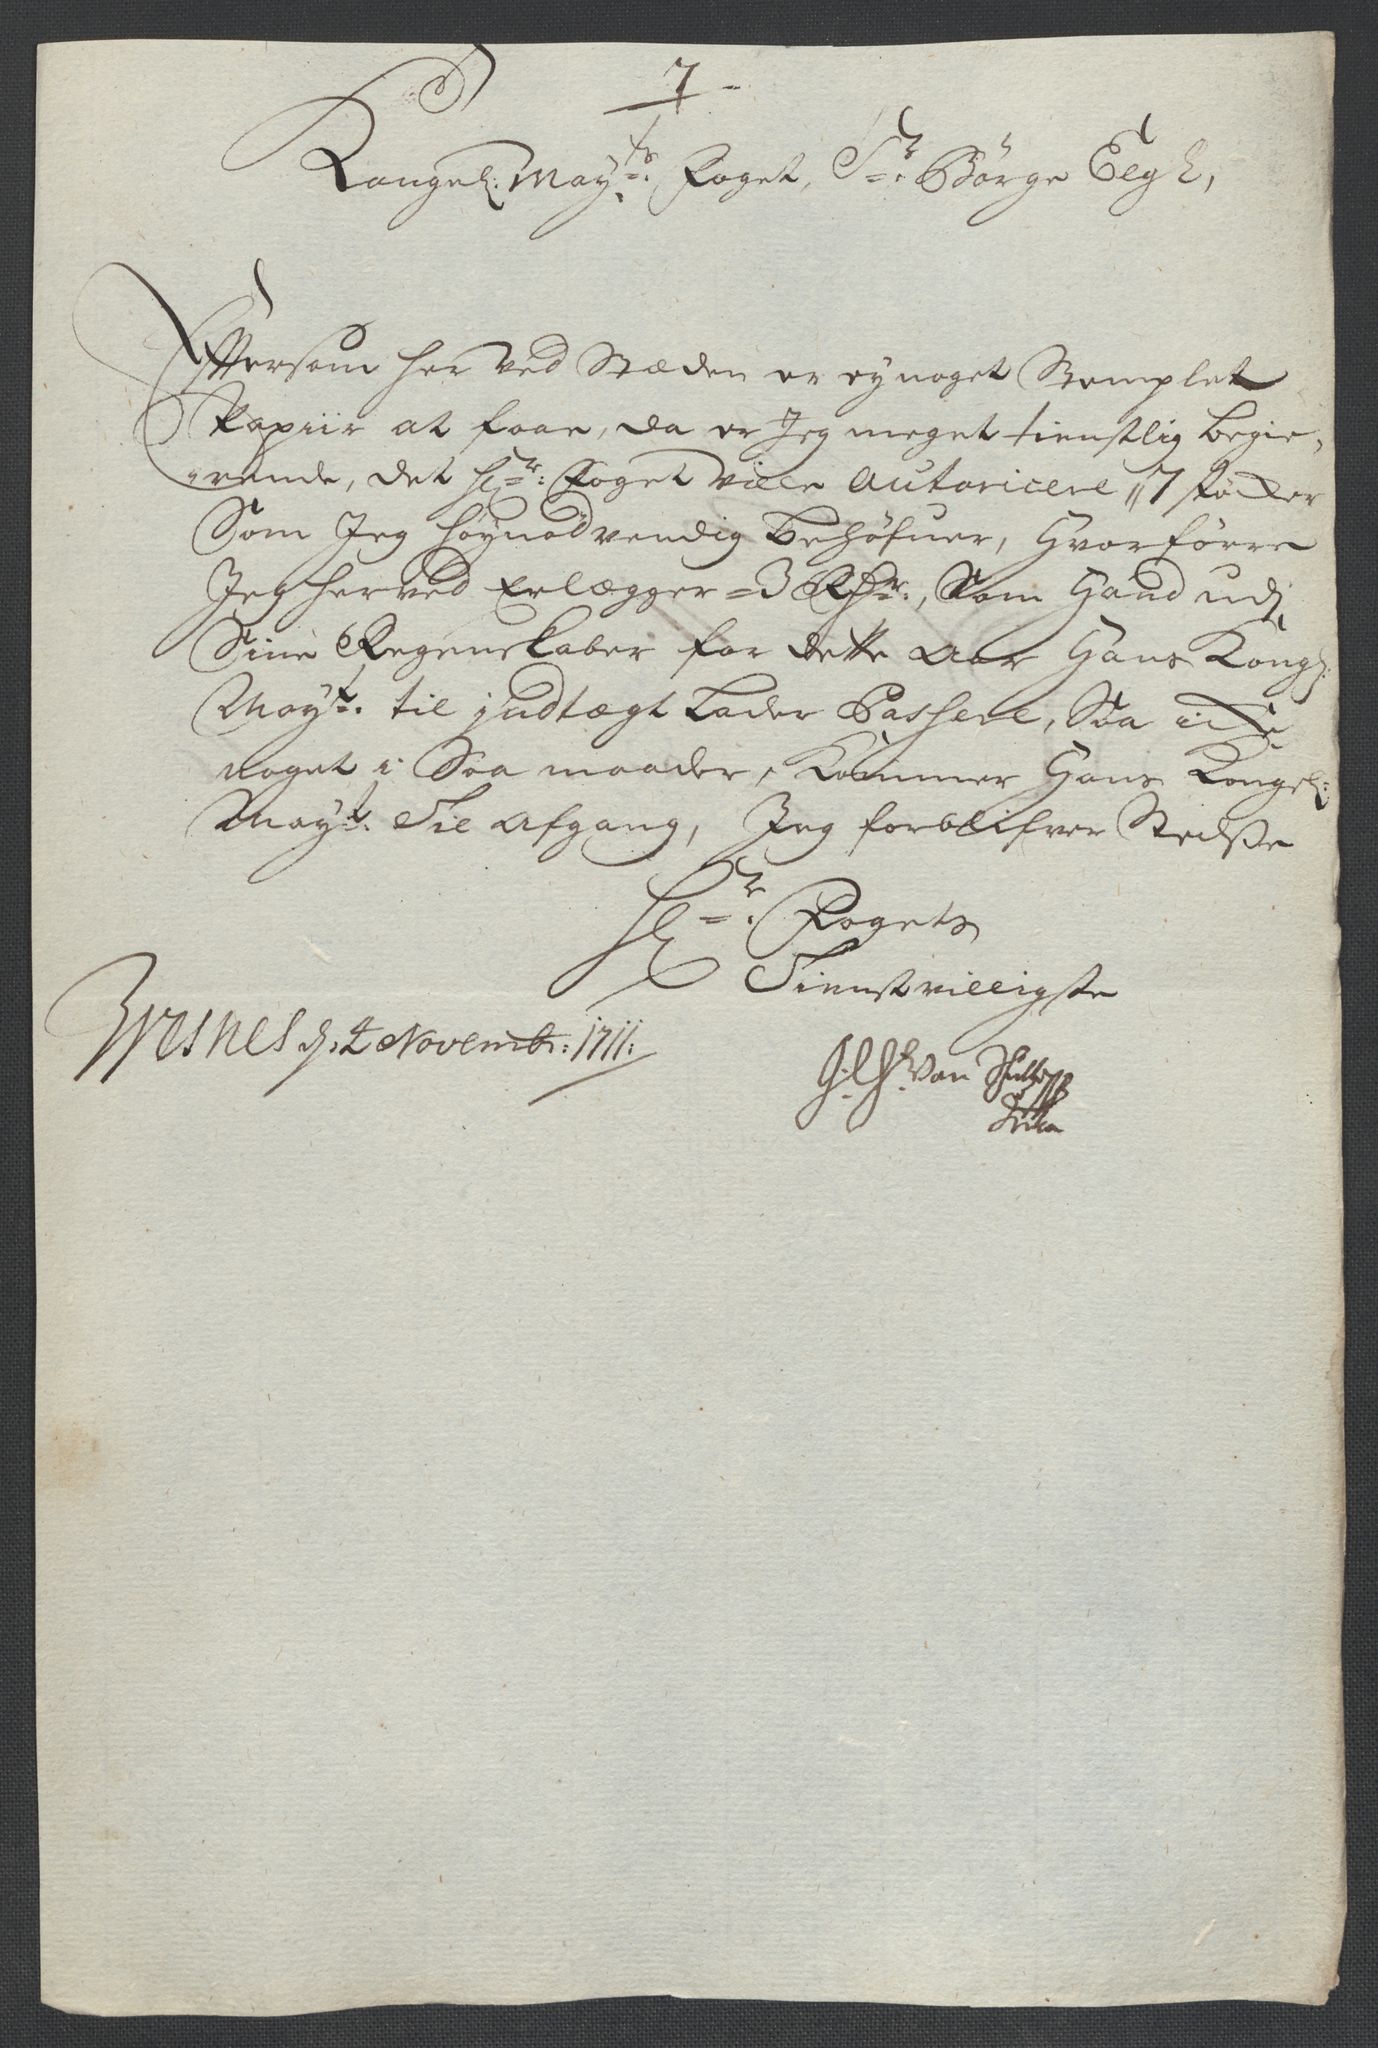 7
Kongel: May:ts Foget, Sr: Börge Elgh,
Effter som her ved Stæden er ey noget Stemplet
Papiir at faae, da er Jeg meget tienstlig begie-
rende, det Hr: Foget ville Autoricere 7 støcker
Som Jeg høynødvendig behøfuer, Hvorforre
Jeg herved Erlægger =3 Rdr:, Som Hand udj
Sine Regenskaber for dette Aar Hans Kongl:
Mayt: til jndtægt Lader Passere, Saa icke
noget i Saa maader, Kommer Hans Kongel:
Mayt: Til Afgang, Jeg forblifver Stedsse
Hr: Fogets
Tienstvilligste
d: 4 Novembr: 1711:
von